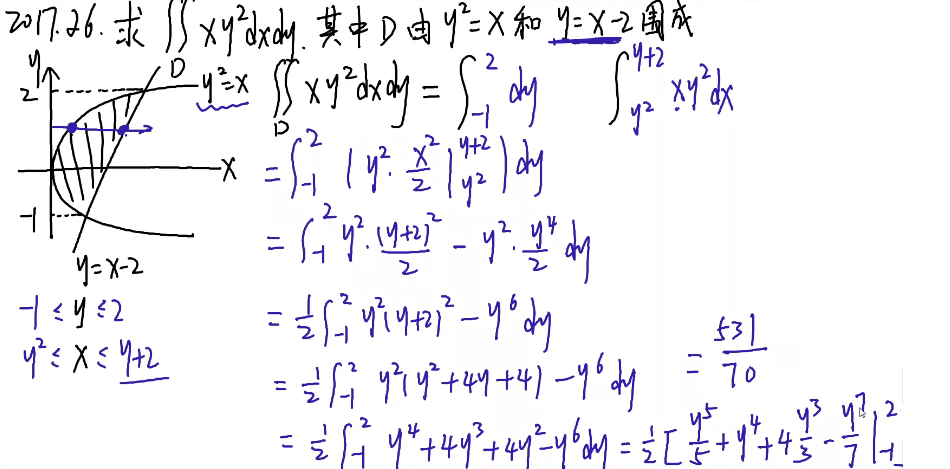 2017.26. 求 ∬ xy²dxdy. 其中 D 由 y²=x 和 y=x-2 围成
y
2
D
y²=x
x
-1
y=x-2
-1 ≤ y ≤ 2
y² ≤ x ≤ y+2
∬_D xy²dxdy = ∫_{-1}^{2} dy ∫_{y²}^{y+2} xy²dx
= ∫_{-1}^{2} ( y² · x²/2 |_{y²}^{y+2} ) dy
= ∫_{-1}^{2} y² · (y+2)²/2 - y² · y⁴/2 dy
= 1/2 ∫_{-1}^{2} y²(y+2)² - y⁶ dy
= 1/2 ∫_{-1}^{2} y²(y²+4y+4) - y⁶ dy
= 1/2 ∫_{-1}^{2} y⁴+4y³+4y²-y⁶dy = 1/2 [ y⁵/5 + y⁴ + 4 y³/3 - y⁷/7 |_{-1}^{2}
= 531/70